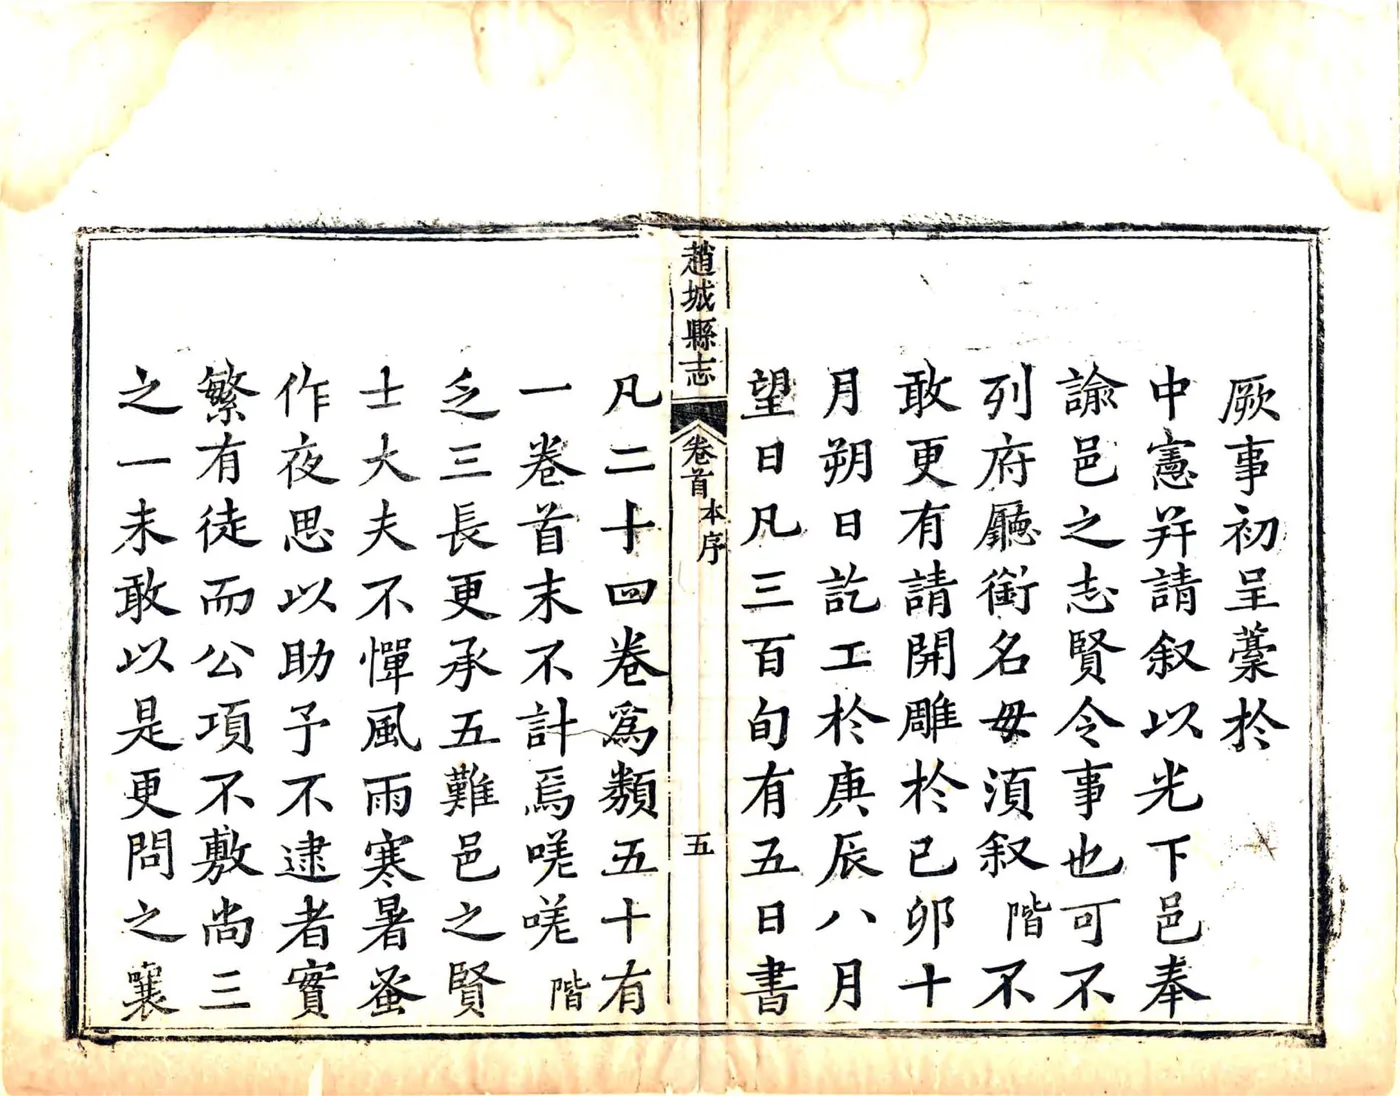 厥事初呈藁於
中憲并請叙以光下邑奉
諭邑之志賢令事也可不
列府廳銜名毋須叙階不
敢更有請開雕於已卯十
月朔日訖工於庚辰八月
望日凡三百旬有五日書
趙城縣志
卷首
本序
五
凡二十四卷爲類五十有
一卷首末不計焉嗟嗟階
乏三長更承五難邑之賢
士大夫不憚風雨寒暑蚤
作夜思以助予不逮者實
繁有徒而公項不敷尚三
之一未敢以是更問之襄